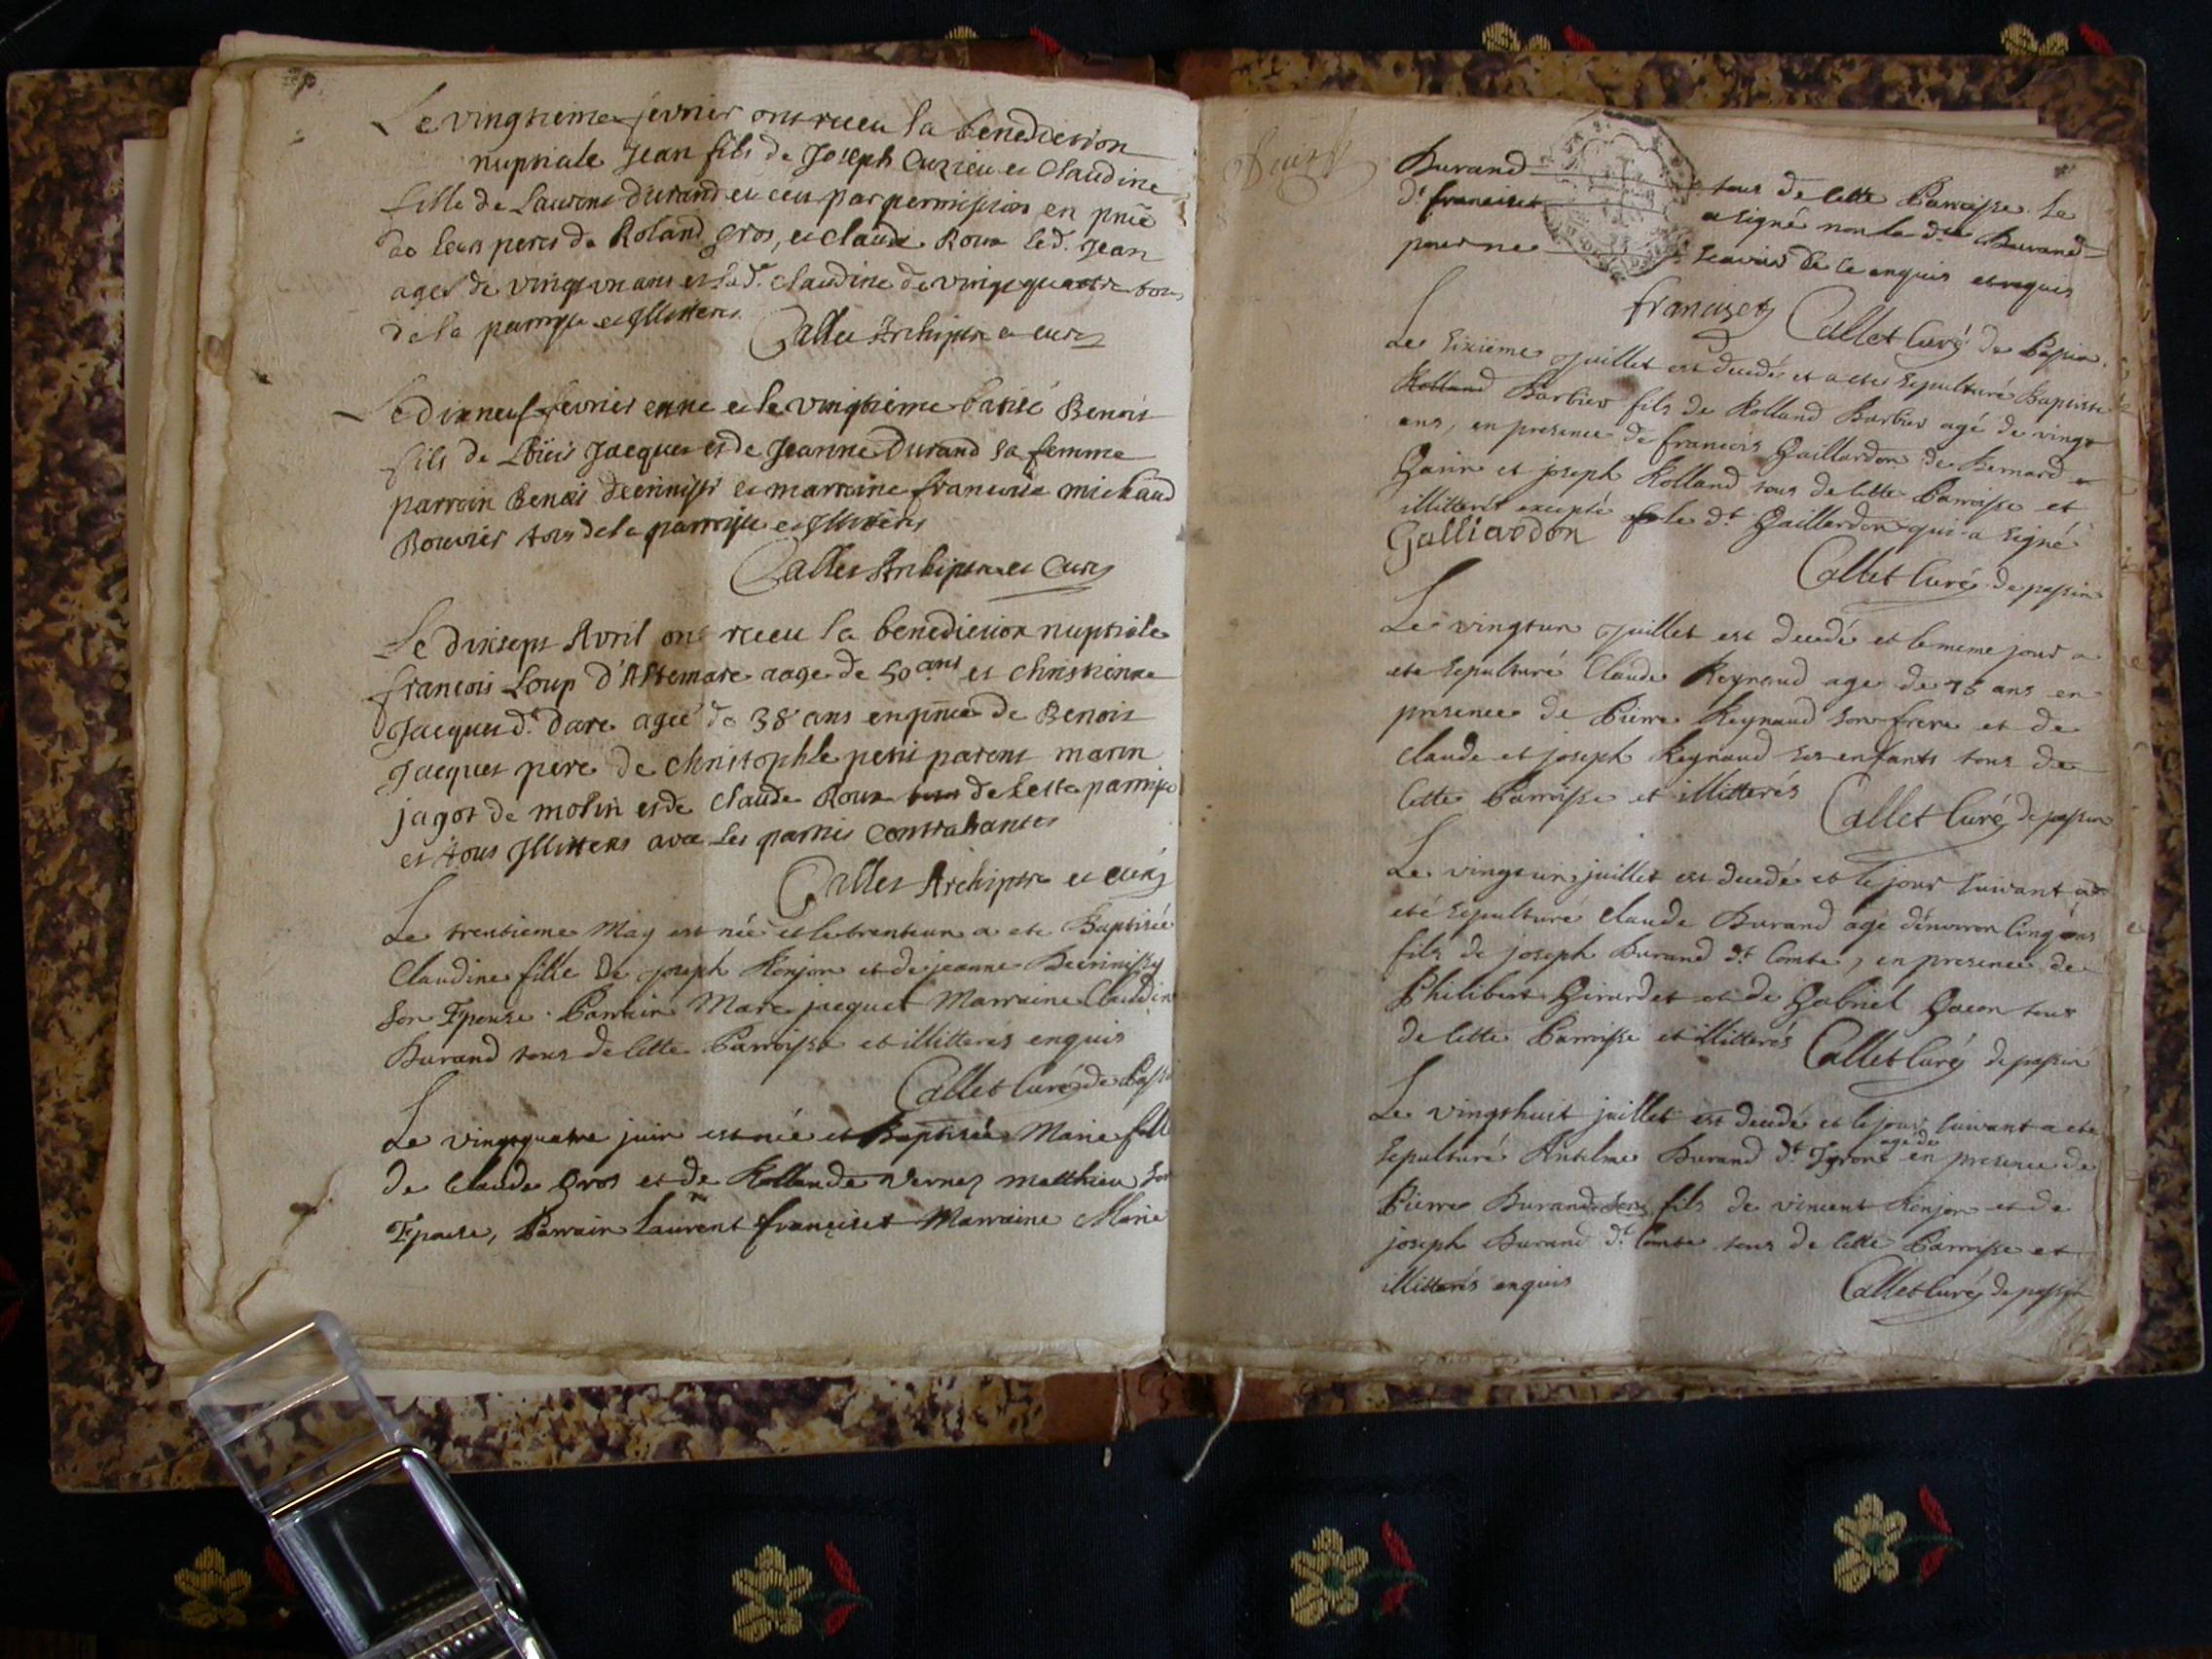 Le vingtieme fevrier ont receu la benediction
nuptiale Jean fils de Joseph Cuzieu et Claudine
fille de Laurent Durand et ceu par permission en pnce
de leurs peres de Roland gros, et claude Roux led. Jean
agé de vingt un ans et lad. claudine de vingt quattre tous
de la parroisse et Illitteres
Callet Archiptre et curé
Le dixneuf fevrier est né et le vingtieme batisé Benoit
fils de Jacques et de Jeanne Durand sa femme
parrain Benoit et marraine francoise michaud
Bouvier tous de la parroisse et Illitteres
Callet Archiptre et Curé
Le dixsept Avril ont receu la benediction nuptiale
francois Loup d'Altemare aagé de 50 ans et Christienne
Jacques dt. dare ageé de 38 ans en pnce de Benoit
Jacques pere de christophle petit parent marin
jagot de et de claude Roux de cette parroisse
et tous Illitters avec les parties contrahantes
Callet Archiptre et curé
Le trentieme May est née et le trenteun a ete Baptisée
Claudine fille de joseph Konjon et de jeanne
son Epouse. Parrain Marc jacquet Marraine Claudine
Durand tous de cette Parroisse et illitteres enquis
Callet Curé de
Le vingtquatre juin est née et Baptisée Marie fille
de Claude Gros et de Kollande Vernez matthieu son
Epouse, Parrain Laurent françiset Marraine Marie
Durand tous de cette Parroisse Le
dt françiset a signé non la dte Durand
pour ne scavoir de ce enquis et requis
françizet Callet Curé de
Le sixieme Juillet est decedé et a ete sepulturé Baptiste
Kolland Barbier fils de Kolland Barbier agé de vingt
ans, en presence de francois Gaillardon de Bernard
Garin et joseph Kolland tous de cette Parroisse et
illitterés excepté le dt Gaillardon qui a signé
Galliardon
Callet Curé de passin
Le vingtun Juillet est decedé et le meme jour a
ete sepulturé Claude Reynaud age de 75 ans en
presence de Pierre Reynaud son frere et de
claude et joseph Reynaud ses enfants tous de
cette Parroisse et illitterés Callet Curé de passin
Le vingtun juillet est decedé et le jour suivant a
eté sepulturé claude Durand agé d'environ cinq ans
fils de joseph Durand dt Combe, en presence de
Philibert Girardet et de Gabriel Gacon tous
de cette Parroisse et illitterés Callet Curé de passin
Le vingthuit juillet est decedé et le jour suivant a ete
sepulturé Antelme Durand dt Tyrone agé de en presence de
Pierre Durand son fils de vincent Konjon et de
joseph Durand dt Combe tous de cette Parroisse et
illitterés enquis Callet Curé de passin